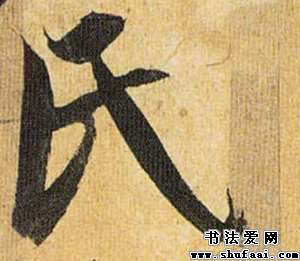 氏
书法爱网
www.shufaai.com